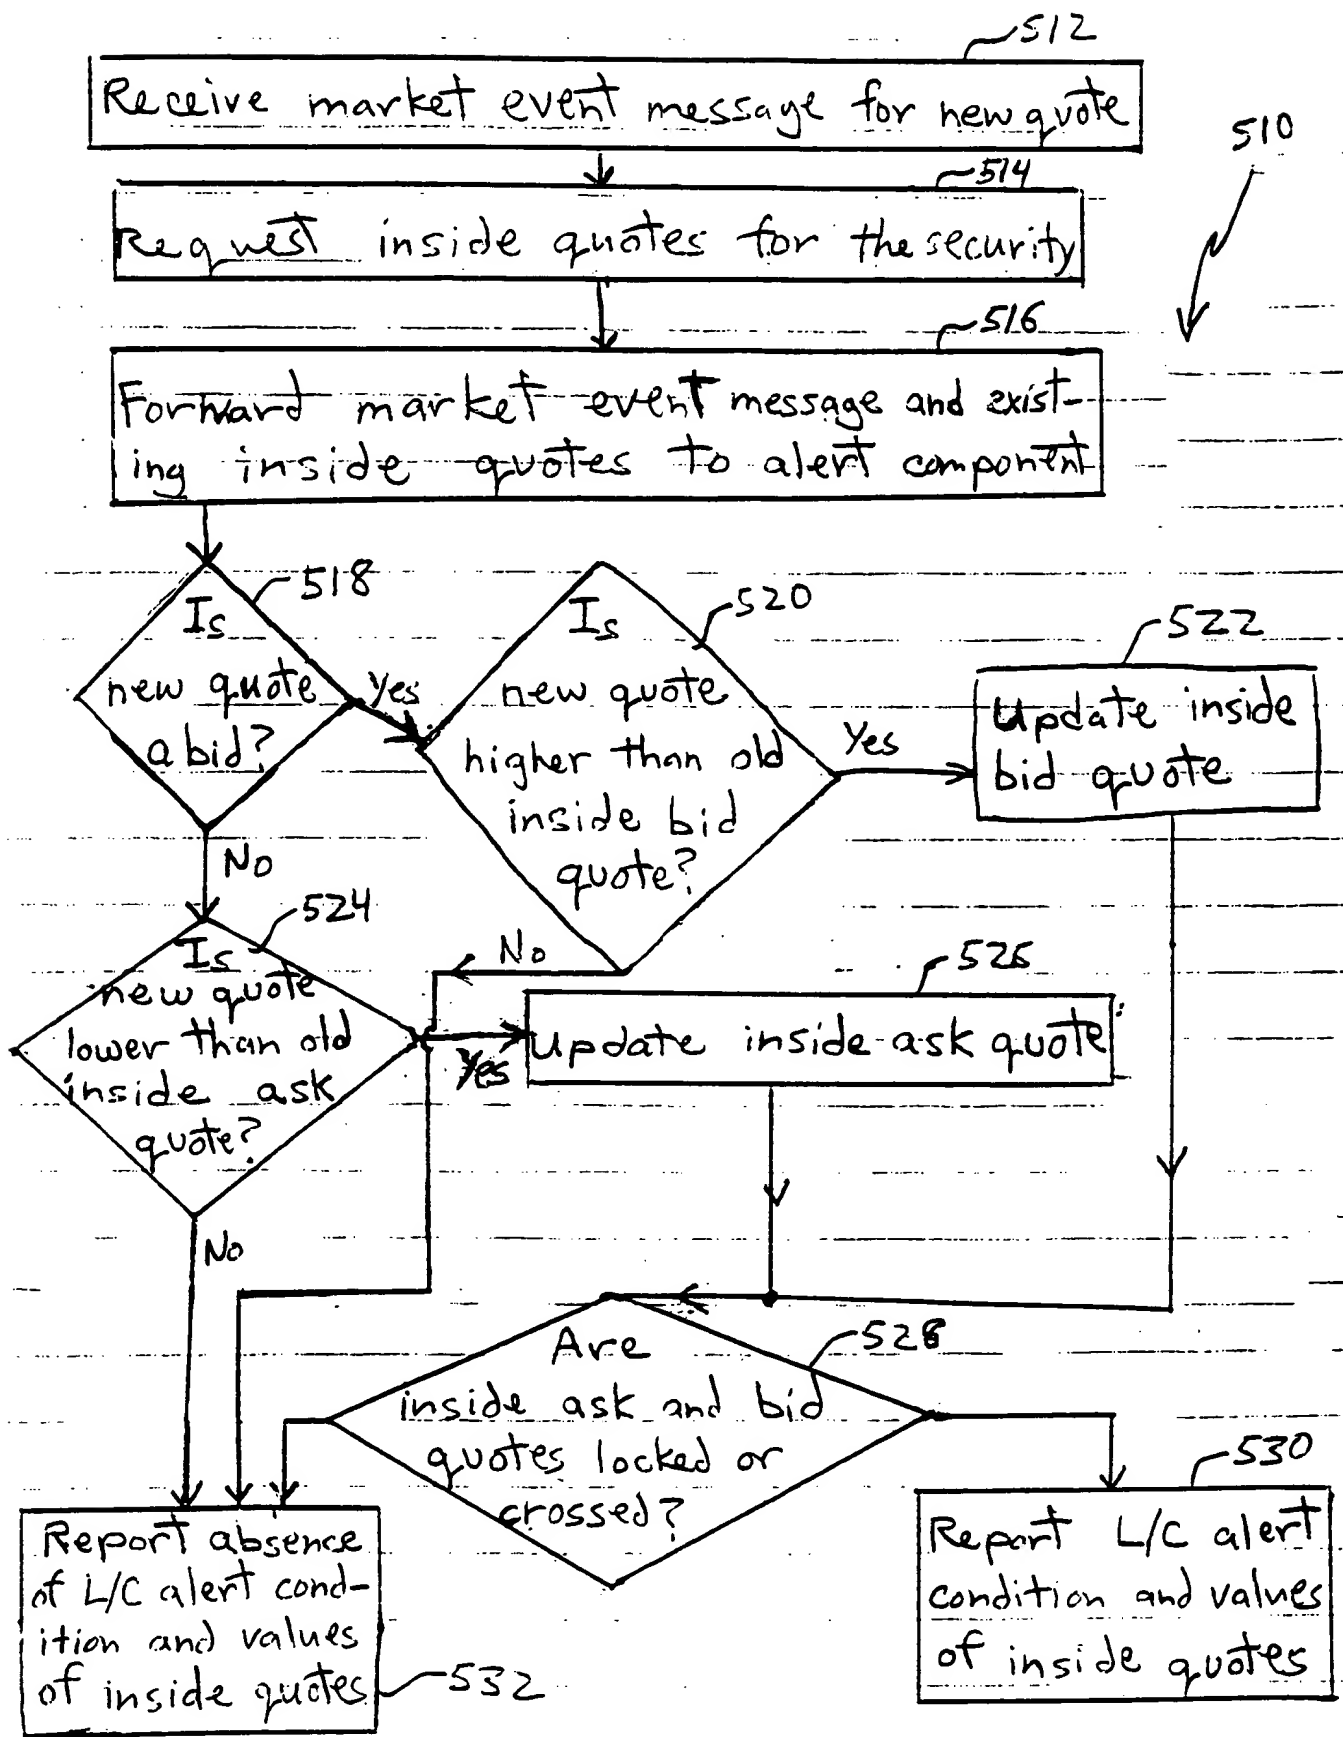 512
Receive market event message for new quote
510
514
Request inside quotes for the security
516
Forward market event message and exist-
ing inside quotes to alert component
518
Is
new quote
a bid?
Yes
No
520
Is
new quote
higher than old
inside bid
quote?
Yes
No
522
Update inside
bid quote
524
Is
new quote
lower than old
inside ask
quote?
Yes
No
526
Update inside ask quote
528
Are
inside ask and bid
quotes locked or
crossed?
530
Report L/C alert
condition and values
of inside quotes
Report absence
of L/C alert cond-
ition and values
of inside quotes
532